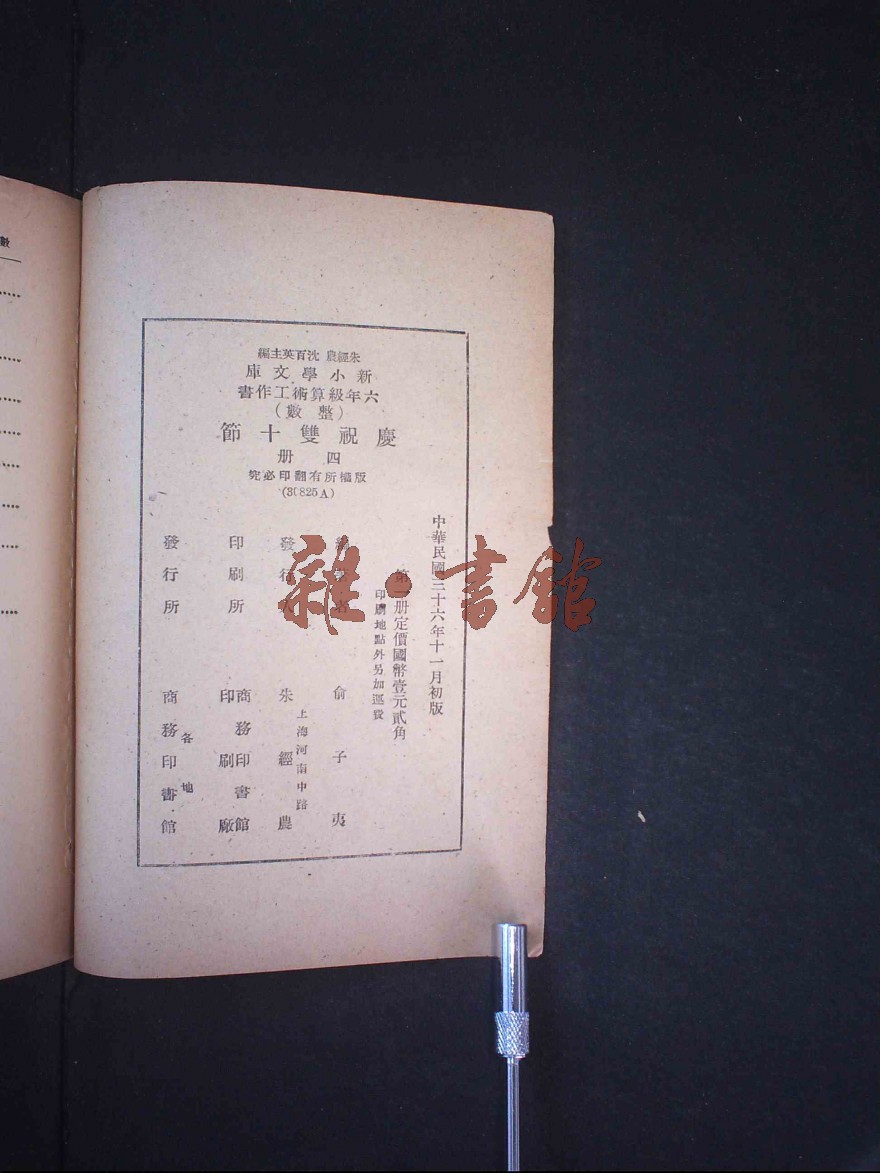 朱經農 沈百英主編
新小學文庫
六年級算術工作書
(整數)
慶祝雙十節
四冊
版權所有翻印必究
(30825A)
中華民國三十六年十一月初版
第一冊定價國幣壹元貳角
印刷地點外另加運費
者 俞子夷
發行人 朱經農
上海河南中路
印刷所 商務印書館
印刷廠
各地
發行所 商務印書館
雜·書館
數